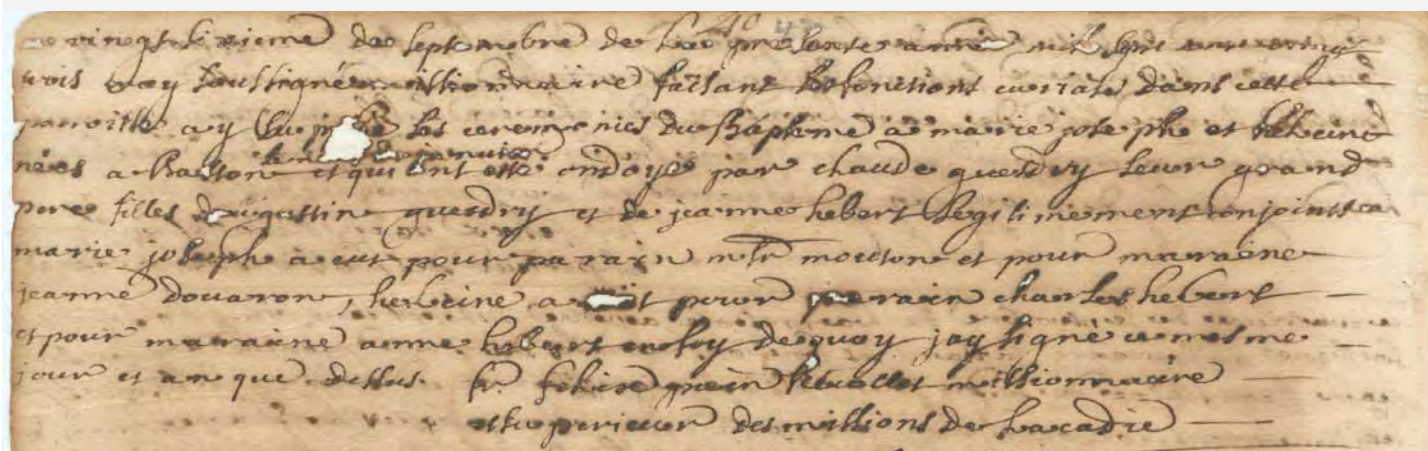 ce vingt sixieme de septembre de la presente année mil sept cent vingt
trois moy soussigné missionnaire faisant les fonctions curiales dans cette
paroisse ay les ceremonies du Bapteme a marie josephe et helaine
nées a Baston et qui ont esté ondoyé par claude guesdry leur grand
pere filles daugustin guesdry et de jeanne hebert legitimement conjoints
marie josephe a eut pour parain mr moutone et pour maraine
jeanne douaron, heleine a eut pour parain charles hebert
et pour maraine anne hebert en foy de quoy jay signé ce mesme
jour et an que dessus fr. felix missionnaire
et superieur des missions de lacadie